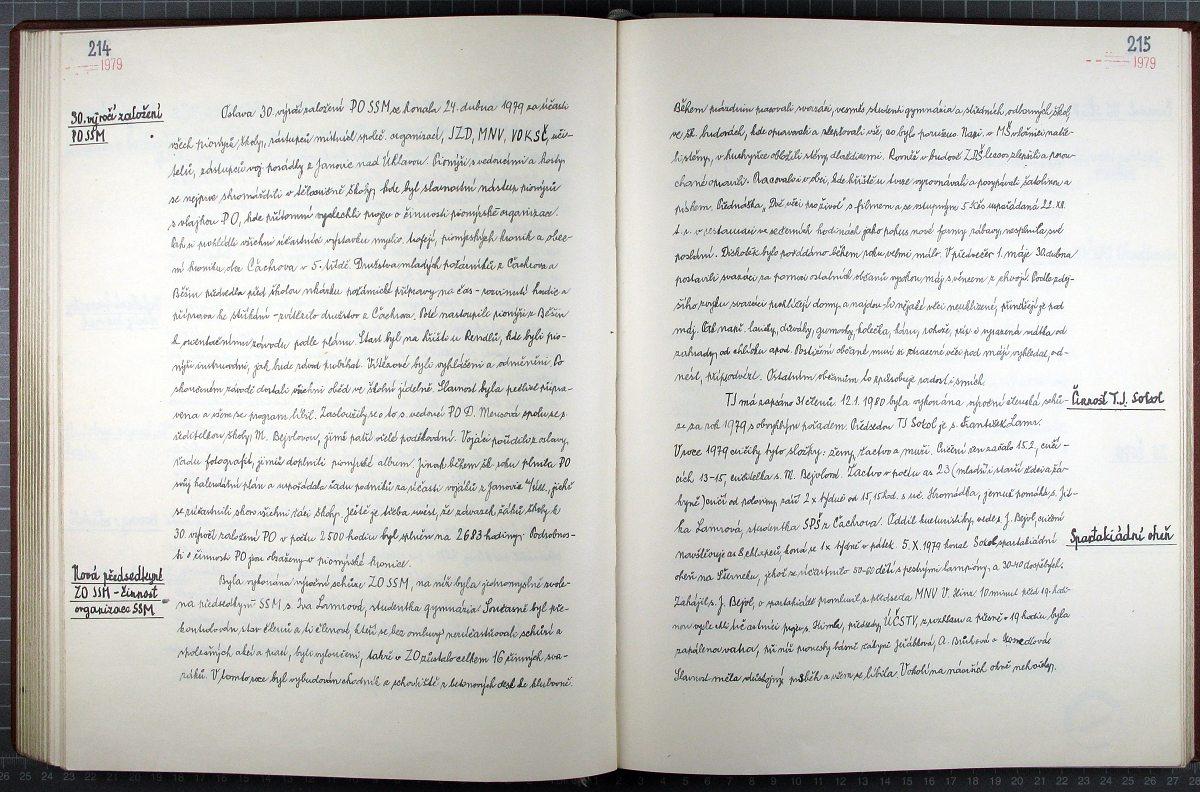 214
1979
30. výročí založení
PO SSM
Oslava 30. výročí založení PO SSM se konala 24. dubna 1979 za účasti
všech pionýrů školy, zástupců místních společ. organizací, JZD, MNV, VO KSČ, uči-
telů, zástupců voj. posádky z Janovic nad Úhlavou. Pionýři s vedoucími a hosty
se nejprve shromáždili v tělocvičně školy, kde byl slavnostní nástup pionýrů
s vlajkou PO, kde přítomní vyslechli projev o činnosti pionýrské organizace.
Pak si prohlédli všichni účastníci výstavku trofejí, pionýrských kronik a obec-
ní kroniku obce Čachrova v 5. třídě. Družstva mladých požárníků z Čachrova a
Běšin předvedla před školou ukázku požárnické přípravy na čas - rozvinutí hadic a
příprava ke stříkání - zvítězilo družstvo z Čachrova. Poté nastoupili pionýři z Běšin
k orientačnímu závodu podle plánu. Start byl na hřišti u Rendlů, kde byli pio-
nýři instruováni, jak bude závod probíhat. Vítězové byli vyhlášeni a odměněni. Po
skončeném závodě dostali všichni oběd ve školní jídelně. Slavnost byla pečlivě připra-
vena a všem se program líbil. Zasloužily se o to s. vedoucí PO D. Mousová spolu se s.
ředitelkou školy M. Bejvlovou, jimž patří vřelé poděkování. Vojáci pořídili z oslavy
řadu fotografií, jimiž doplnili pionýrské album. Jinak během šk. roku plnila PO
svůj kalendářní plán a uspořádala řadu podniků za účasti vojáků z Janovic n/Úhl., jichž
se zúčastnili skoro všichni žáci školy. Ještě je třeba uvést, že závazek žáků školy k
30. výročí založení PO v počtu 2500 hodin byl splněn na 2683 hodiny. Podrobnos-
ti o činnosti PO jsou obsaženy v pionýrské kronice.
Nová předsedkyně
ZO SSM - činnost
organizace SSM
Byla vykonána výroční schůze ZO SSM, na níž byla jednomyslně zvole-
na předsedkyní SSM s. Iva Lamrová, studentka gymnázia. Současně byl pře-
kontrolován stav členů a ti členové, kteří se bez omluvy nezúčastňovali schůzí a
společných akcí a prací, byli vyloučeni, takže v ZO zůstalo celkem 16 činných sva-
záků. V tomto roce byl vybudován chodník a schodiště z betonových desk ke klubovně.
215
1979
Během prázdnin pracovali svazáci, vesměs studenti gymnázia a středních odborných škol,
ve šk. budovách, kde opravovali a zlepšovali vše, co bylo porušeno. Např. v MŠ v ložnici natře-
li stěny, v kuchyňce obložili stěny dlaždicemi. Rovněž v budově ZDŠ leccos zlepšili a porou-
chané opravili. Pracovali i v obci, kde hřiště u tvrze vyrovnávali a posypávali šotolinou a
pískem. Přednáška "Dvě věci pro život" s filmem a se vstupným 5 Kčs uspořádaná 22. XII.
t. r. v restauraci ve večerních hodinách jako pokus nové formy zábavy nesplnila své
poslání. Diskoték bylo pořádáno během roku velmi málo. V předvečer 1. máje 30. dubna
postavili svazáci za pomoci ostatních občanů vysokou máj s věncem z chvojí. Podle zdej-
šího zvyku svazáci prohlížejí domy a najdou-li nějaké věci neuklizené, přivlékají je pod
máj. Tak např. lavičky, džbány, gumovky, kolečka, káru, rohože, psíse i vyrazená vrátka od
zahrady, od chlívku apod. Postižení občané musí si ztracené věci pod májí vyhledat, od-
nést, příp. odvézt. Ostatním občanům to způsobuje radost i smích.
Činnost T.J. Sokol
TJ má zapsáno 31 členů. 12.1. 1980 byla vykonána výroční členská schů-
ze za rok 1979 s obvyklým pořadem. Předsedou TJ Sokol je s. František Lamr.
V roce 1979 cvičily tyto složky: ženy, žactvo a muži. Cvičení žen začalo 15.2., cviči-
cích 13-15, cvičitelka s. M. Bejvlová. Žactvo v počtu as 23 (mladší i starší žáci a žá-
kyně) cvičí od poloviny září 2x týdně od 15,15 hod. s uč. Hromádka, jemuž pomáhá s. Jit-
ka Lamrová, studentka SPŠ z Čachrova. Oddíl kulturistiky, vede s. J. Bejvl, cvičení
navštěvuje as 8 chlapců, koná se 1x týdně v pátek. 5. X. 1979 konal Sokol spartakiádní
Spartakiádní oheň
oheň na Šterneku, jehož se účastnilo 50-60 dětí s pestrými lampiony a 30-40 dospělých.
Zahájil s. J. Bejvl, o spartakiádě promluvil s. předseda MNV V. Zíma. 10 minut před 19. hodi-
nou vyslechli účastníci projev s. Himla, předsedy ÚČSTV, z rozhlasu a přesně v 19 hodin byla
zapálena vatra, při níž pronesly básně žákyně Jeřábková, A. Brůhová a
Slavnost měla důstojný průběh a všem se líbila. V okolí na návrších ohně nehořely.